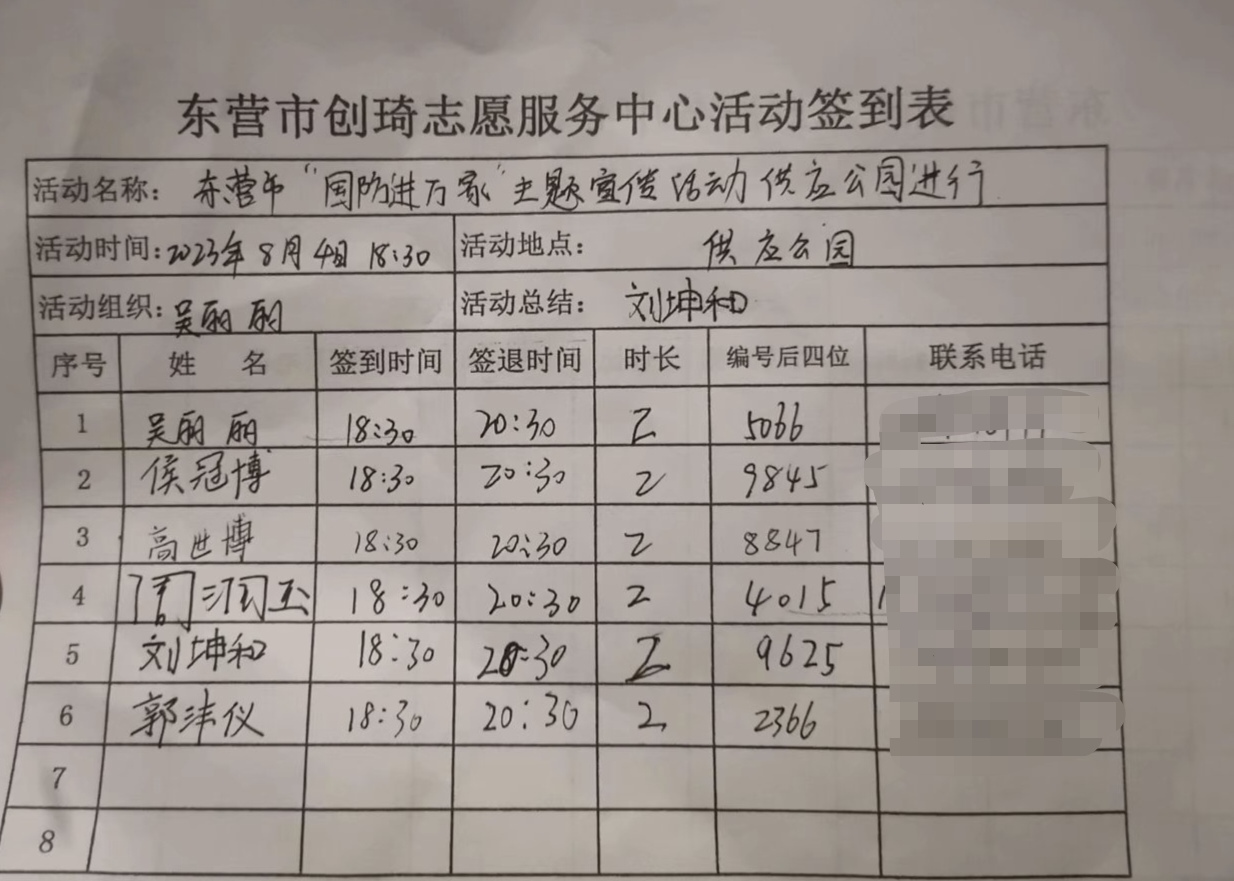 东营市创琦志愿服务中心活动签到表
活动名称: 东营市“国防进万家”主题宣传活动供应公园进行
活动时间:2023年8月4日 18:30 活动地点: 供应公园
活动组织:吴丽丽 活动总结: 刘坤和
序号 姓 名 签到时间 签退时间 时长 编号后四位 联系电话
1 吴丽丽 18:30 20:30 2 5066
2 侯冠博 18:30 20:30 2 9845
3 高世博 18:30 20:30 2 8847
4 周润玉 18:30 20:30 2 4015
5 刘坤和 18:30 20:30 2 9625
6 郭沣仪 18:30 20:30 2 2366
7
8